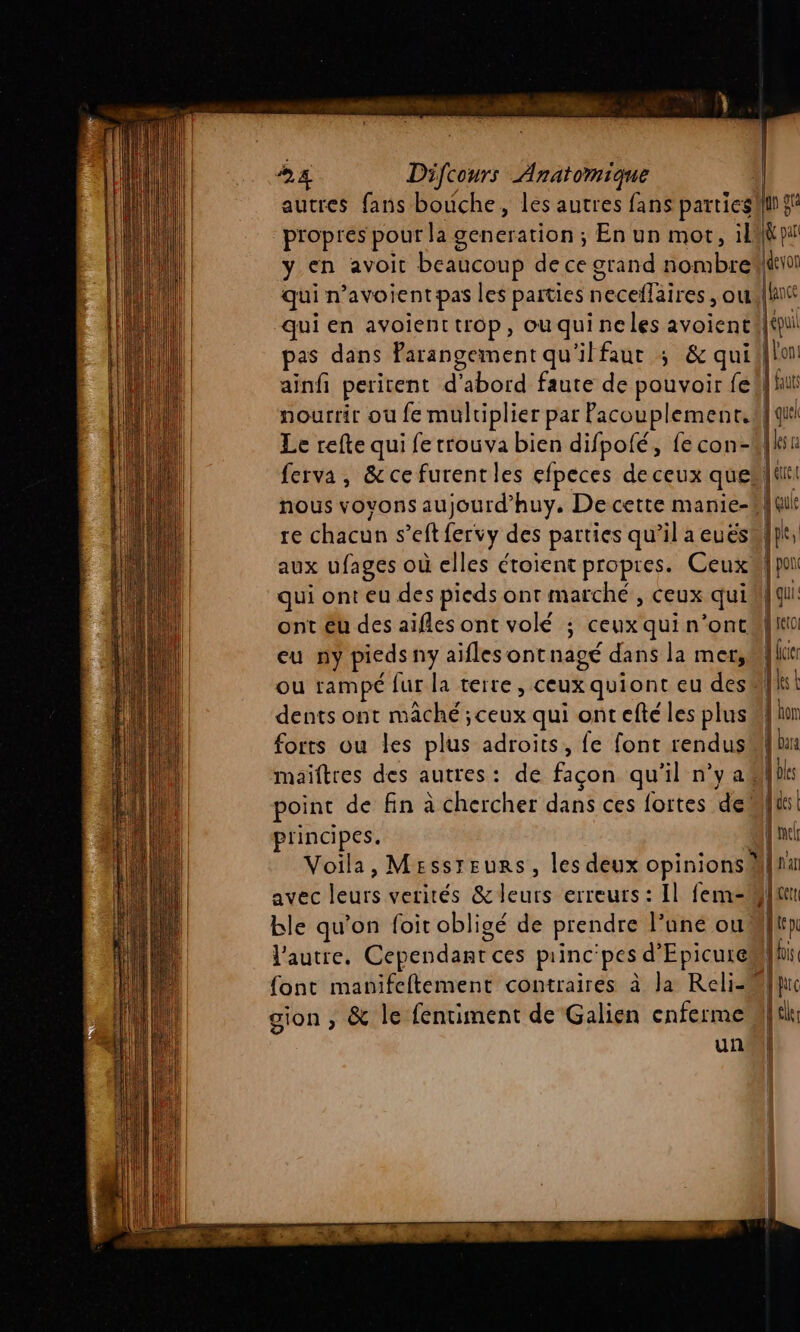 24 Diſcours Anatomique
autres ſans bouche, les autres ſans parties
propres pour la generation ; En un mot, il
y en avoit beaucoup de ce grand nombre
qui n'avoient pas les parties neceſſaires, ou
qui en avoient trop, ou qui ne les avoient
pas dans l'arangement qu'il faut ; & qui
ainſi perirent d'abord faute de pouvoir ſe
nourrir ou ſe multiplier par l'acouplement.
Le reſte qui ſe trouva bien diſpoſé, ſe con-
ſerva, & ce furent les eſpeces de ceux que
nous voyons aujourd'huy. De cette manie-
re chacun s'eſt ſervy des parties qu'il a euës
aux uſages où elles étoient propres. Ceux
qui ont eu des pieds ont marché, ceux qui
ont eu des aiſles ont volé ; ceux qui n'ont
eu ny pieds ny aiſles ont nagé dans la mer,
ou rampé ſur la terre, ceux qui ont eu des
dents ont mâché ; ceux qui ont eſté les plus
forts ou les plus adroits, ſe ſont rendus
maiſtres des autres : de façon qu'il n'y a
point de fin à chercher dans ces ſortes de
principes.
Voila, MESSIEURS, les deux opinions
avec leurs verités & leurs erreurs : Il ſem-
ble qu'on ſoit obligé de prendre l'une ou
l'autre. Cependant ces principes d'Epicure
ſont manifeſtement contraires à la Reli-
gion, & le ſentiment de Galien enferme
un